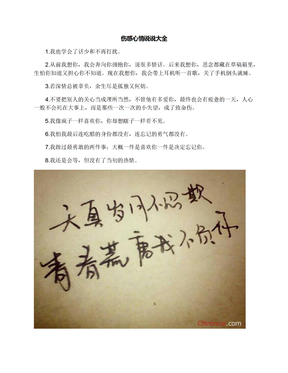 伤感心情说说大全
1.我也学会了话少和不再打扰。
2.从前我想你，我会奔向你拥抱你，说很多情话。后来我想你，思念都藏在草稿箱里，
生怕你知道又担心你不知道。现在我想你，我会带上耳机听一首歌，关了手机倒头就睡。
3.若深情总被辜负，余生尽是孤独又何妨。
4.不要把别人的关心当成理所当然。不管他有多爱你，最终也会有疲惫的一天，人心
一般不会死在大事上，而是那些一次一次的小失望，成了致命伤。
5.我像疯子一样喜欢你，你却想瞎子一样看不见。
6.怕我我最后连吃醋的身份都没有，连忘记的勇气都没有。
7.我做过最勇敢的两件事；大概一件是喜欢你一件是决定忘记你。
8.我还是会等，但没有了当初的热情。
天真岁月不忍欺
青春荒唐我不负你
.com